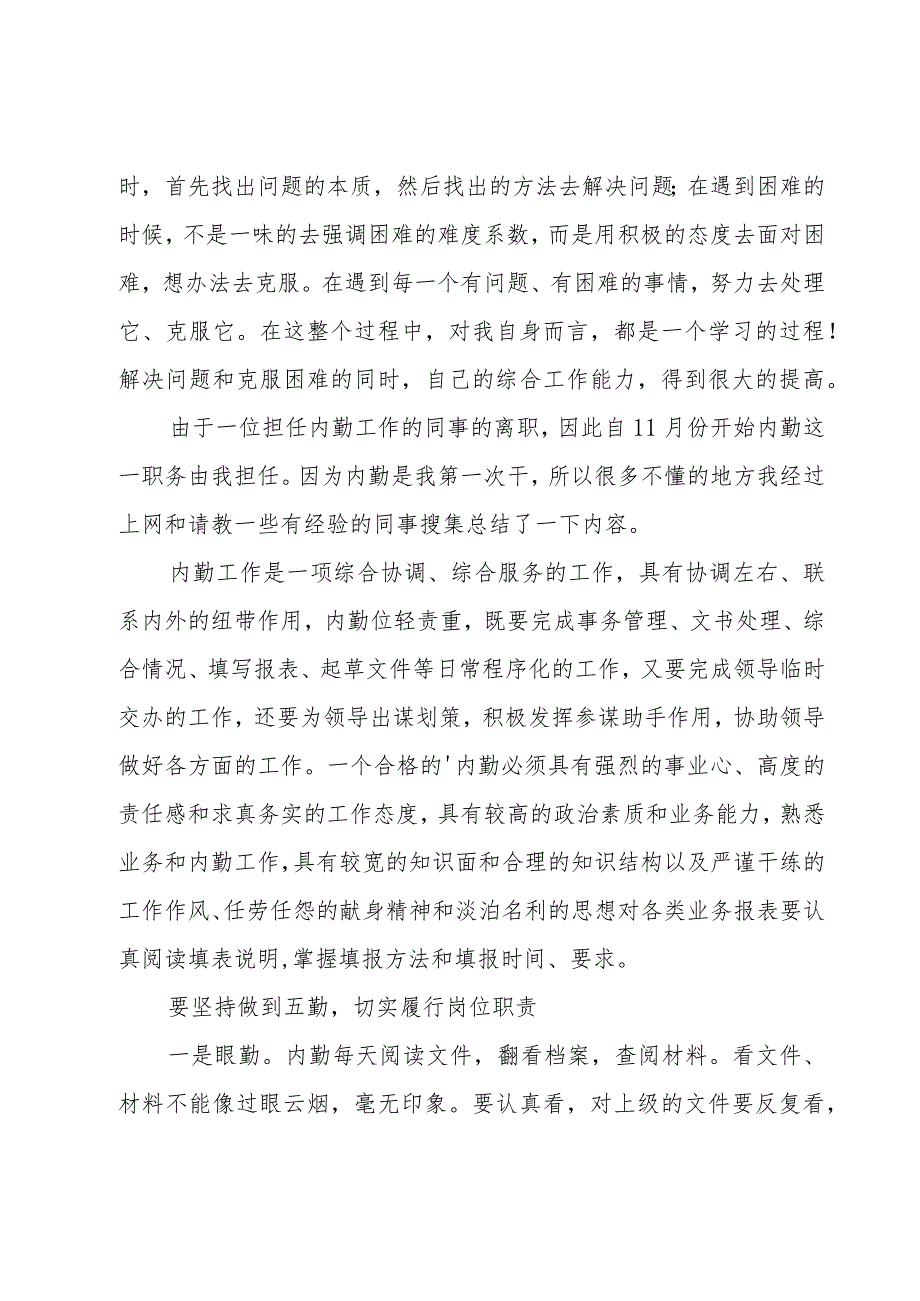 时，首先找出问题的本质，然后找出的方法去解决问题；在遇到困难的
时候，不是一味的去强调困难的难度系数，而是用积极的态度去面对困
难，想办法去克服。在遇到每一个有问题、有困难的事情，努力去处理
它、克服它。在这整个过程中，对我自身而言，都是一个学习的过程！
解决问题和克服困难的同时，自己的综合工作能力，得到很大的提高。
由于一位担任内勤工作的同事的离职，因此自11月份开始内勤这
一职务由我担任。因为内勤是我第一次干，所以很多不懂的地方我经过
上网和请教一些有经验的同事搜集总结了一下内容。
内勤工作是一项综合协调、综合服务的工作，具有协调左右、联
系内外的纽带作用，内勤位轻责重，既要完成事务管理、文书处理、综
合情况、填写报表、起草文件等日常程序化的工作，又要完成领导临时
交办的工作，还要为领导出谋划策，积极发挥参谋助手作用，协助领导
做好各方面的工作。一个合格的'内勤必须具有强烈的事业心、高度的
责任感和求真务实的工作态度，具有较高的政治素质和业务能力，熟悉
业务和内勤工作,具有较宽的知识面和合理的知识结构以及严谨干练的
工作作风、任劳任怨的献身精神和淡泊名利的思想对各类业务报表要认
真阅读填表说明,掌握填报方法和填报时间、要求。
要坚持做到五勤，切实履行岗位职责
一是眼勤。内勤每天阅读文件，翻看档案，查阅材料。看文件、
材料不能像过眼云烟，毫无印象。要认真看，对上级的文件要反复看，